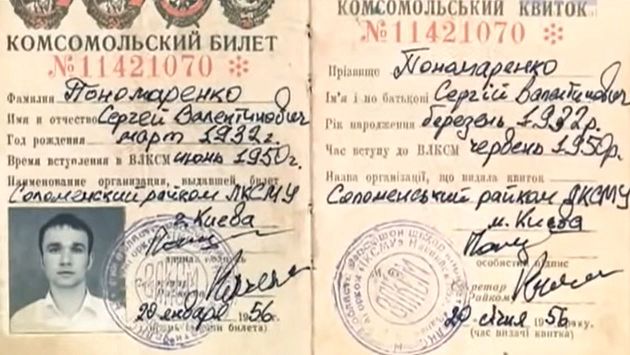 КОМСОМОЛЬСКИЙ БИЛЕТ
№11421070
Фамилия Пономаренко
Имя и отчество Сергей Валентинович
Год рождения март 1932г.
Время вступления в ВЛКСМ июнь 1950г
Наименование организации, выдавшей билет
Соломенский райком ЛКСМУ
г. Киева
20 января 1956 г.
КОМСОМОЛЬСЬКИЙ КВИТОК
№11421070
Прізвище Пономаренко
Ім'я і по батькові Сергій Валентинович
Рік народження березень 1932р.
Час вступу до ВЛКСМ червень 1950р.
Назва організації, що видала квиток
Соломенський райком ЛКСМУ
м. Києва
особистий підпис
Райкому
20 січня 1956 року.
(час видачі квитка)
ВЛКСМ